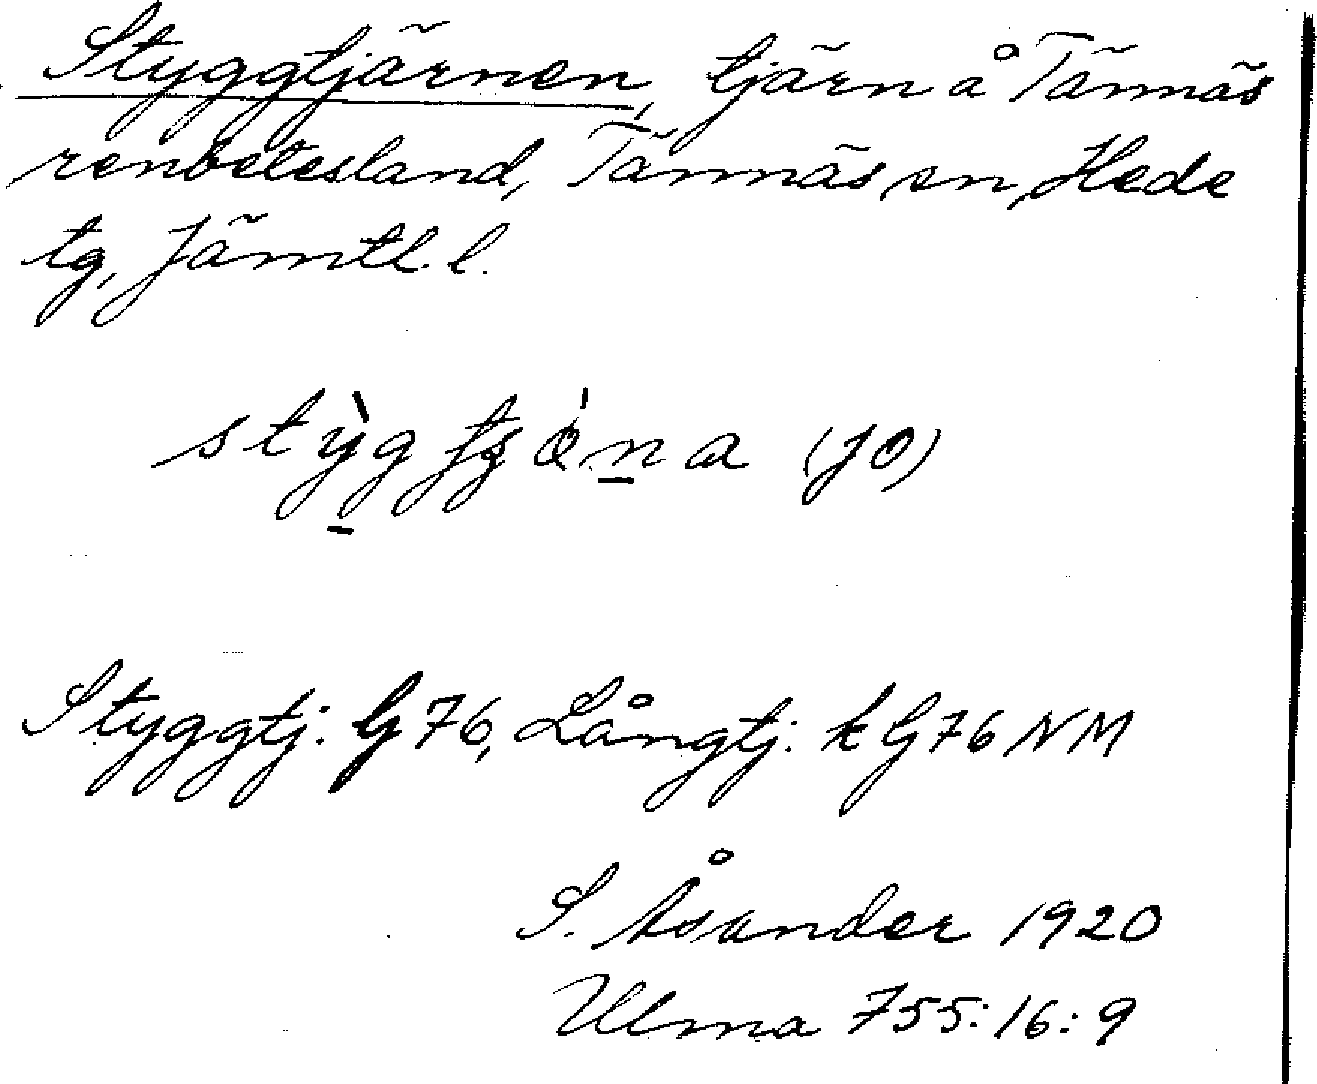 Styggtjärnen, tjärn å Tännäs
renbetesland, Tännäs sn, Hede
tg, Jämtl. l.
(JO)
Styggtj: G 76, Långtj: k G 76 NM
S. Åsander 1920
Ulma 755:16:9